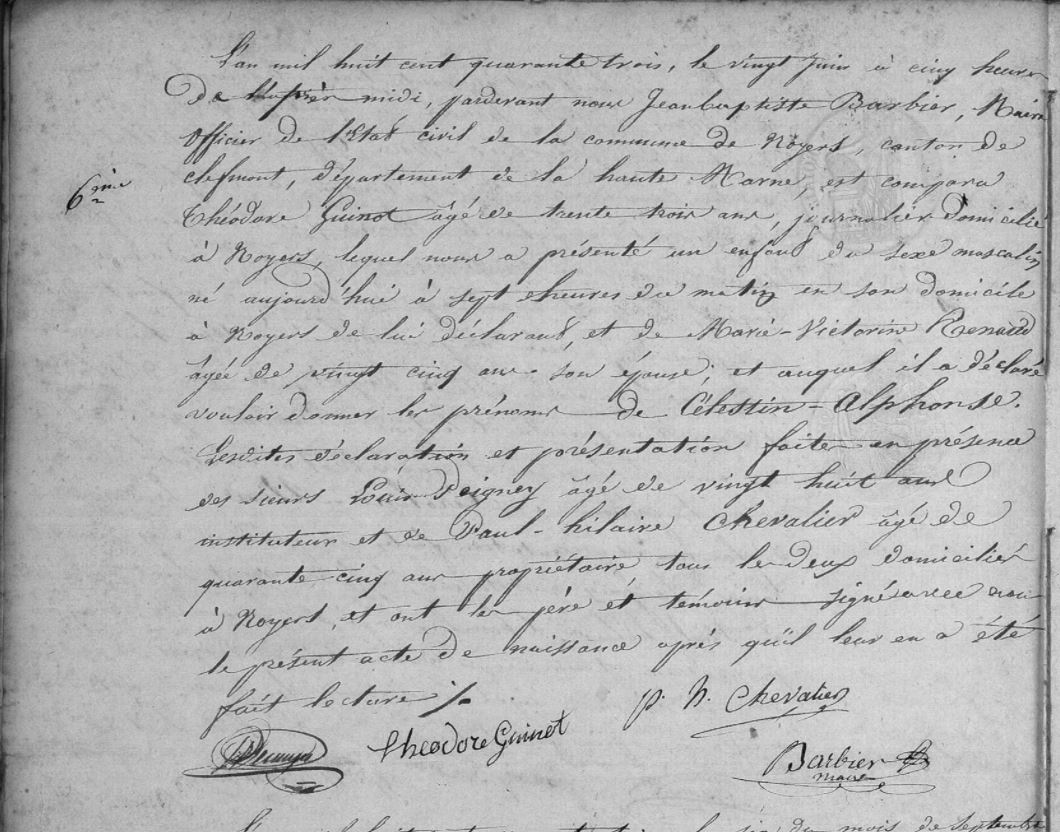 L'an mil huit cent quarante trois, le vingt juin à cinq heures
de l'après midi, pardevant nous Jeanbaptiste Barbier, Maire
officier de l'Etat civil de la commune de Noyers, canton de
clefmont, département de la haute Marne, est comparu
6ème
Théodore Guinot âgé de trente trois ans, journalier domicilié
à Noyers, lequel nous a présenté un enfant du sexe masculin
né aujourd'hui à sept heures du matin en son domicile
à Noyers de lui déclarant, et de Marie-Victorine Renaud
âgée de vingt cinq ans son épouse, et auquel il a déclaré
vouloir donner les prénoms de Célestin-Alphonse.
Lesdites déclaration et présentation faites en présence
des sieurs Louis Peigney âgé de vingt huit ans
instituteur et de Paul-hilaire Chevalier âgé de
quarante cinq ans propriétaire tous les deux domiciliés
à Noyers, et ont les père et témoins signé avec nous
le présent acte de naissance après qu'il leur en a été
fait lecture ./.
P. h. Chevalier
Théodore Guinot
Barbier
maire
du mois de septembre